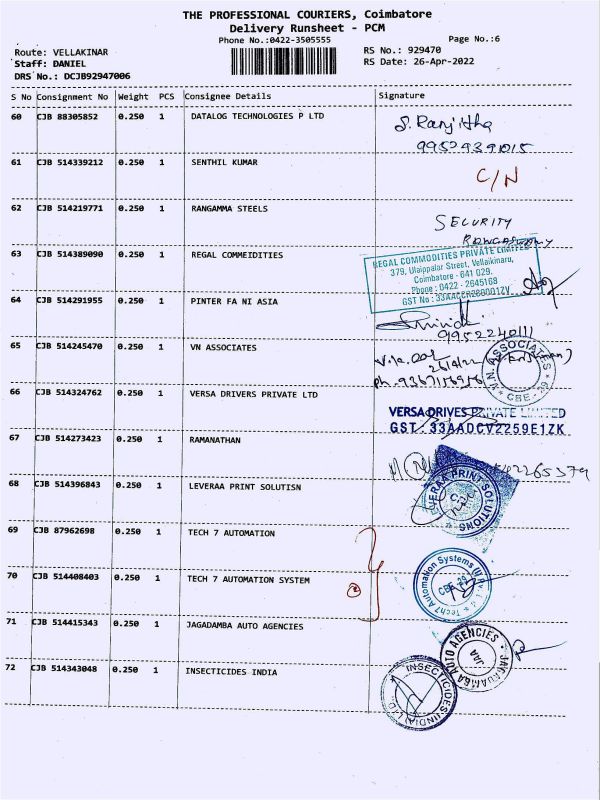 THE PROFESSIONAL COURIERS, Coimbatore
Delivery Runsheet - PCM
Phone No.:0422-3505555
Page No.:6
Route: VELLAKINAR
RS No.: 929470
Staff: DANIEL
RS Date: 26-Apr-2022
DRS No.: DCJB92947006
S No Consignment No Weight PCS Consignee Details Signature
60 CJB 88305852 0.250 1 DATALOG TECHNOLOGIES P LTD
S. Ranjitha
9952939015
61 CJB 514339212 0.250 1 SENTHIL KUMAR
C/N
62 CJB 514219771 0.250 1 RANGAMMA STEELS
SECURITY
63 CJB 514389090 0.250 1 REGAL COMMEIDITIES
REGAL COMMODITIES PRIVATE LIMITED
379, Ulaippalar Street, Vellaikinaru,
Coimbatore - 641 029.
Phone : 0422 - 2645168
GST No :
64 CJB 514291955 0.250 1 PINTER FA NI ASIA
9952240111
65 CJB 514245470 0.250 1 VN ASSOCIATES
26/4/22
ph.
V.N ASSOCIATES
CBE - 29
66 CJB 514324762 0.250 1 VERSA DRIVERS PRIVATE LTD
VERSA DRIVES PRIVATE LIMITED
GST : 33AADCV2259E1ZK
67 CJB 514273423 0.250 1 RAMANATHAN
68 CJB 514396843 0.250 1 LEVERAA PRINT SOLUTISN
PRINT SOLUTIONS
69 CJB 87962698 0.250 1 TECH 7 AUTOMATION
70 CJB 514408403 0.250 1 TECH 7 AUTOMATION SYSTEM
2
Tech7 Automation Systems
CBE-29
71 CJB 514415343 0.250 1 JAGADAMBA AUTO AGENCIES
JAGADAMBA AUTO AGENCIES
JAA
72 CJB 514343048 0.250 1 INSECTICIDES INDIA
INSECTICIDES (INDIA) LTD